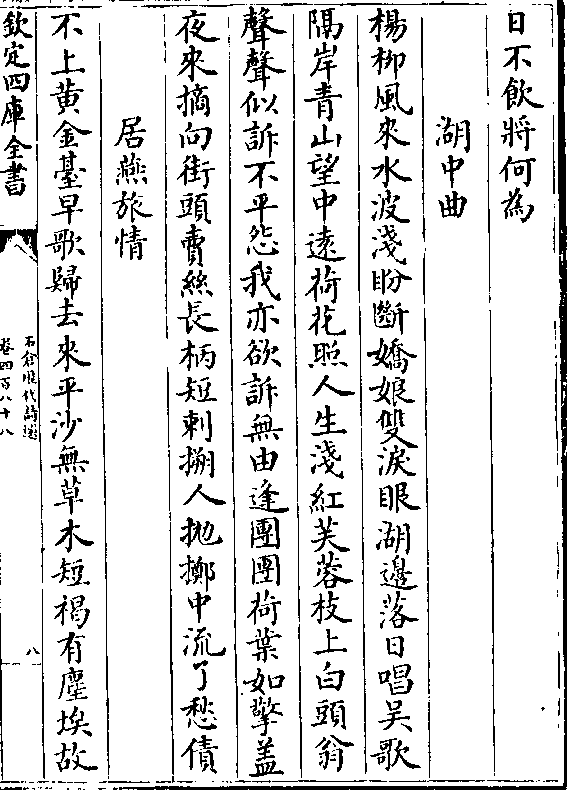 日不飲將何為
湖中曲
楊柳風來水波淺盼斷嬌娘雙淚眼湖邊落日唱吴歌
隔岸青山望中遠荷花照人生淺紅芙蓉枝上白頭翁
聲聲似訴不平怨我亦欲訴無由逢團團荷葉如擎盖
夜來摘向街頭賣絲長柄短刺搠人抛擲中流了愁債
居燕旅情
不上黄金臺早歌歸去來平沙無草木短褐有塵埃故
欽定四庫全書
石倉歷代詩選
卷四百八十八
八